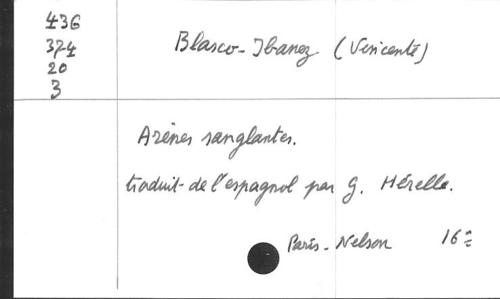 436
374
20
3
Blasco-Ibanez (Vincenté)
Arènes sanglantes.
traduit de l'espagnol par G. Hérelle.
Paris-Nelson 16=